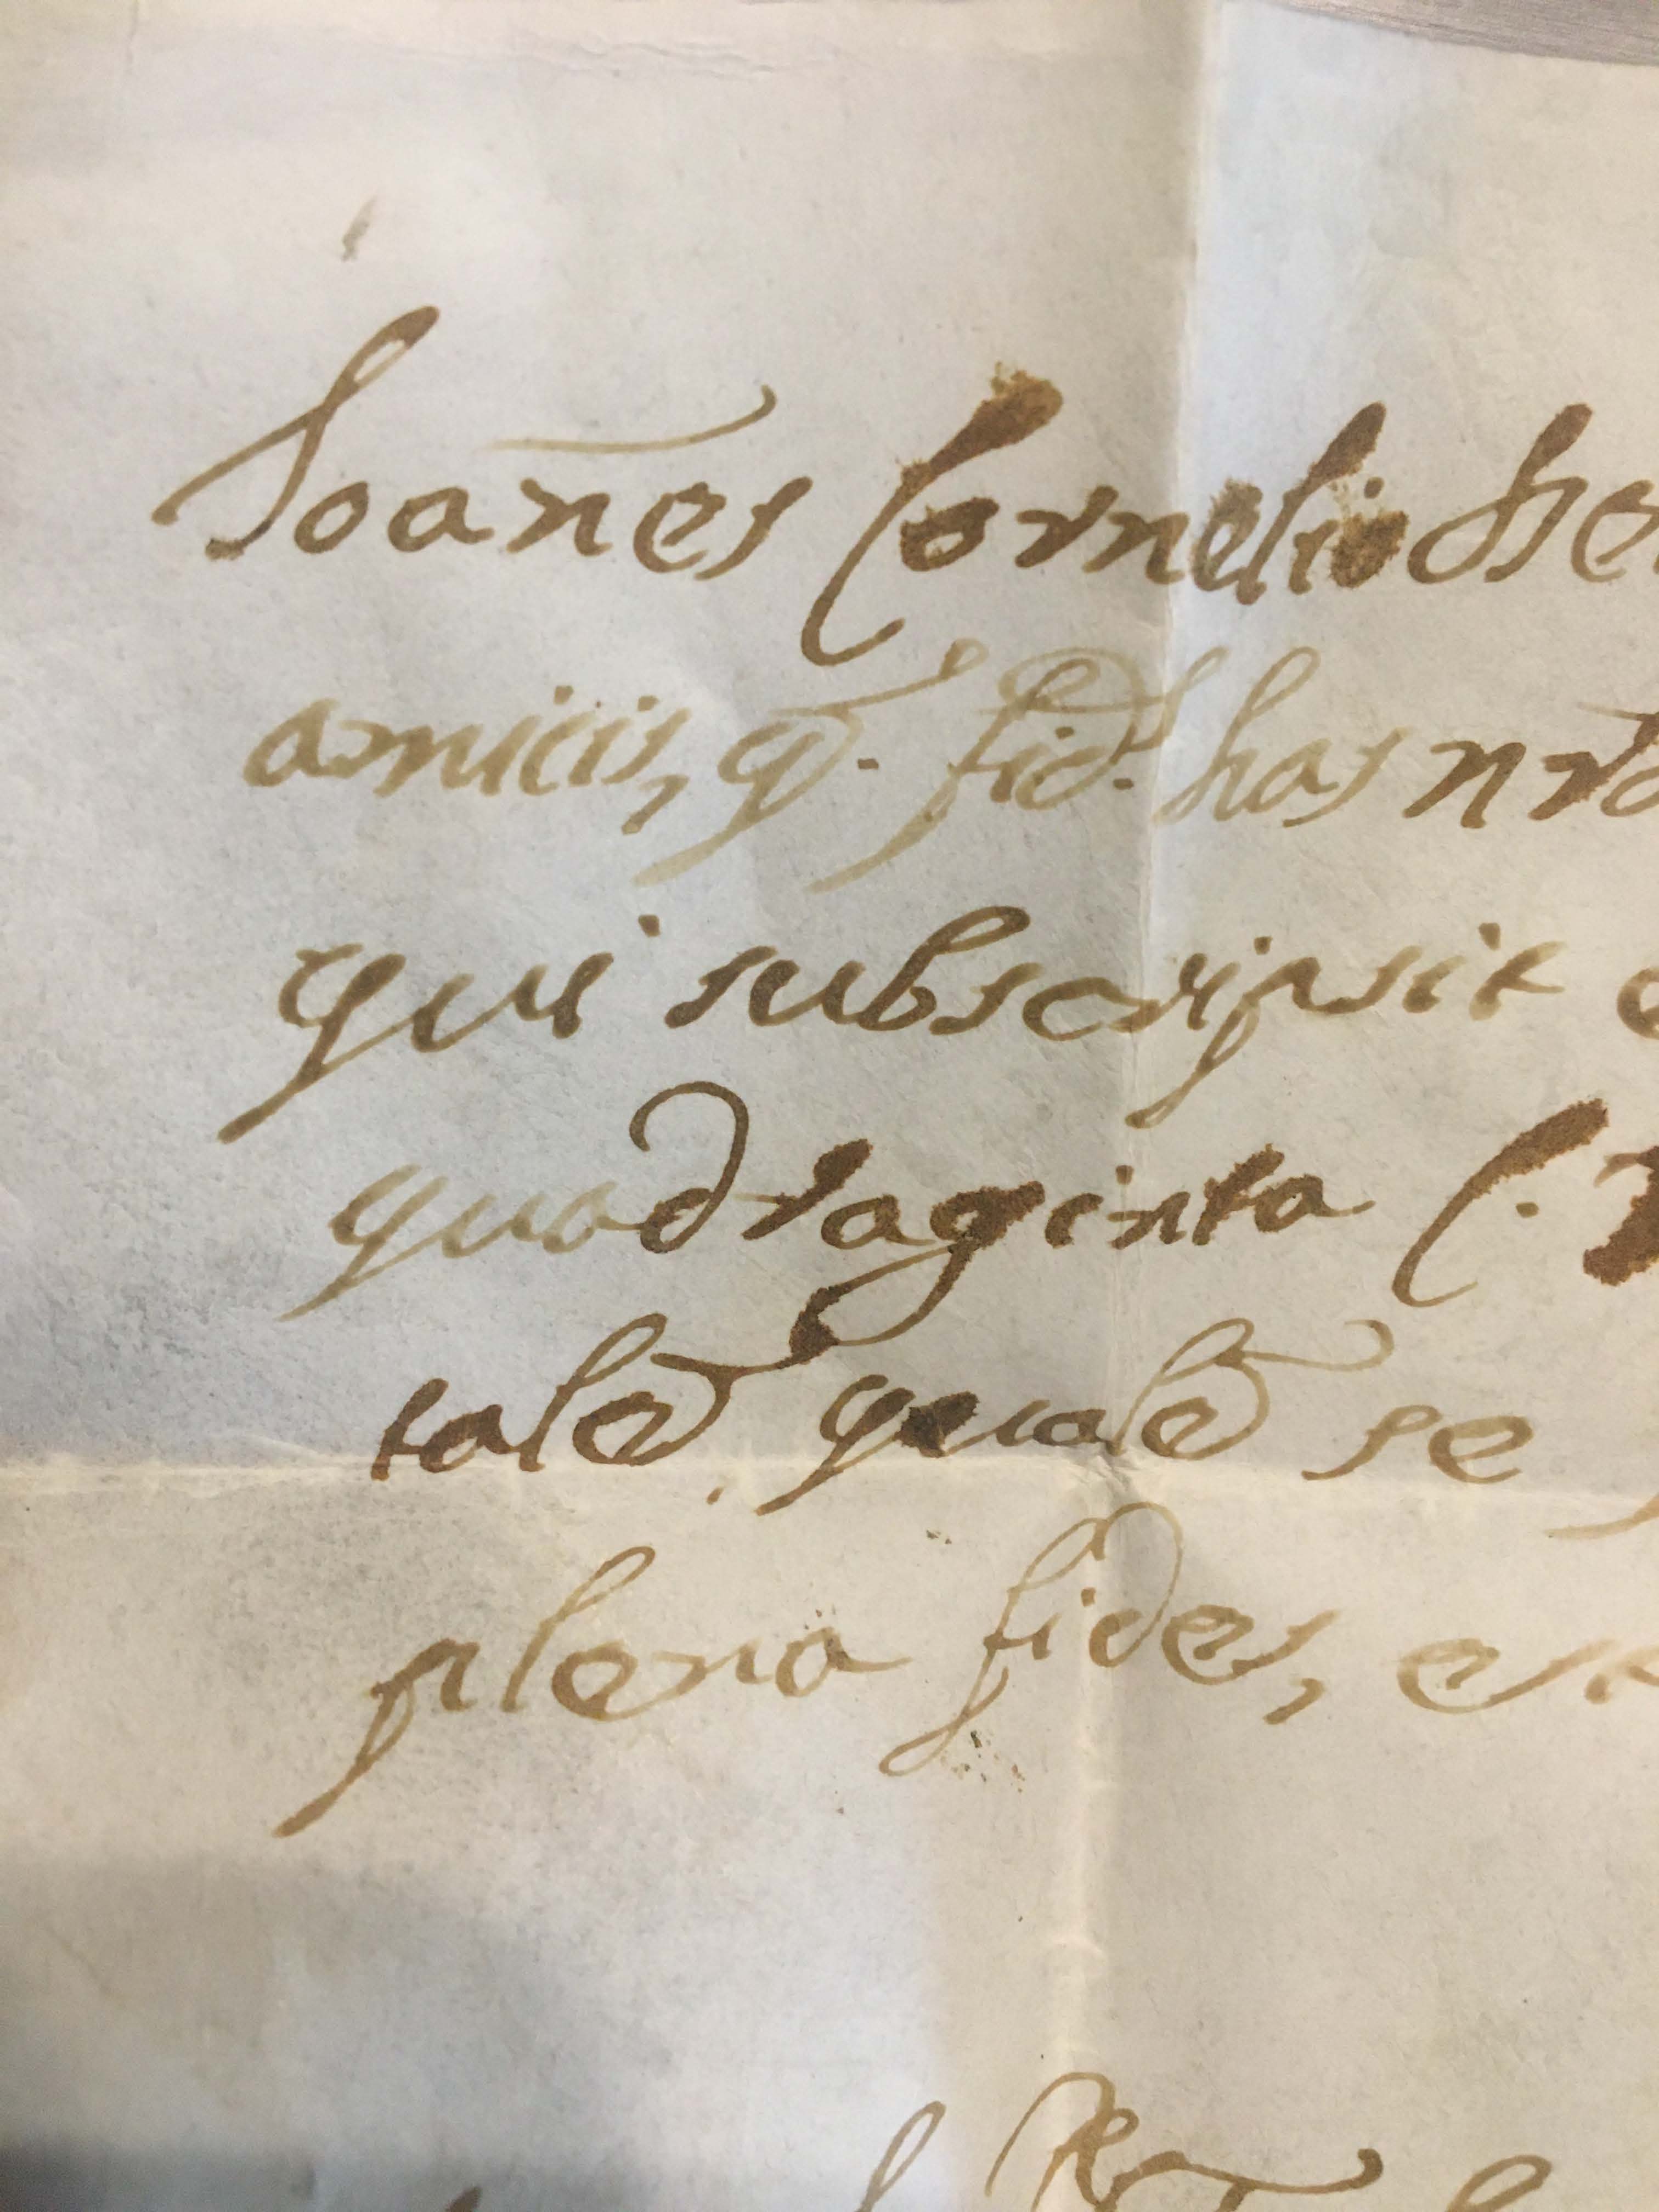 Ioan̄es Cornelio De
amicis, q̄. fid. has nr̄a
qui subscripsit e
quadraginta (.
talē qualē se
plena fides, et